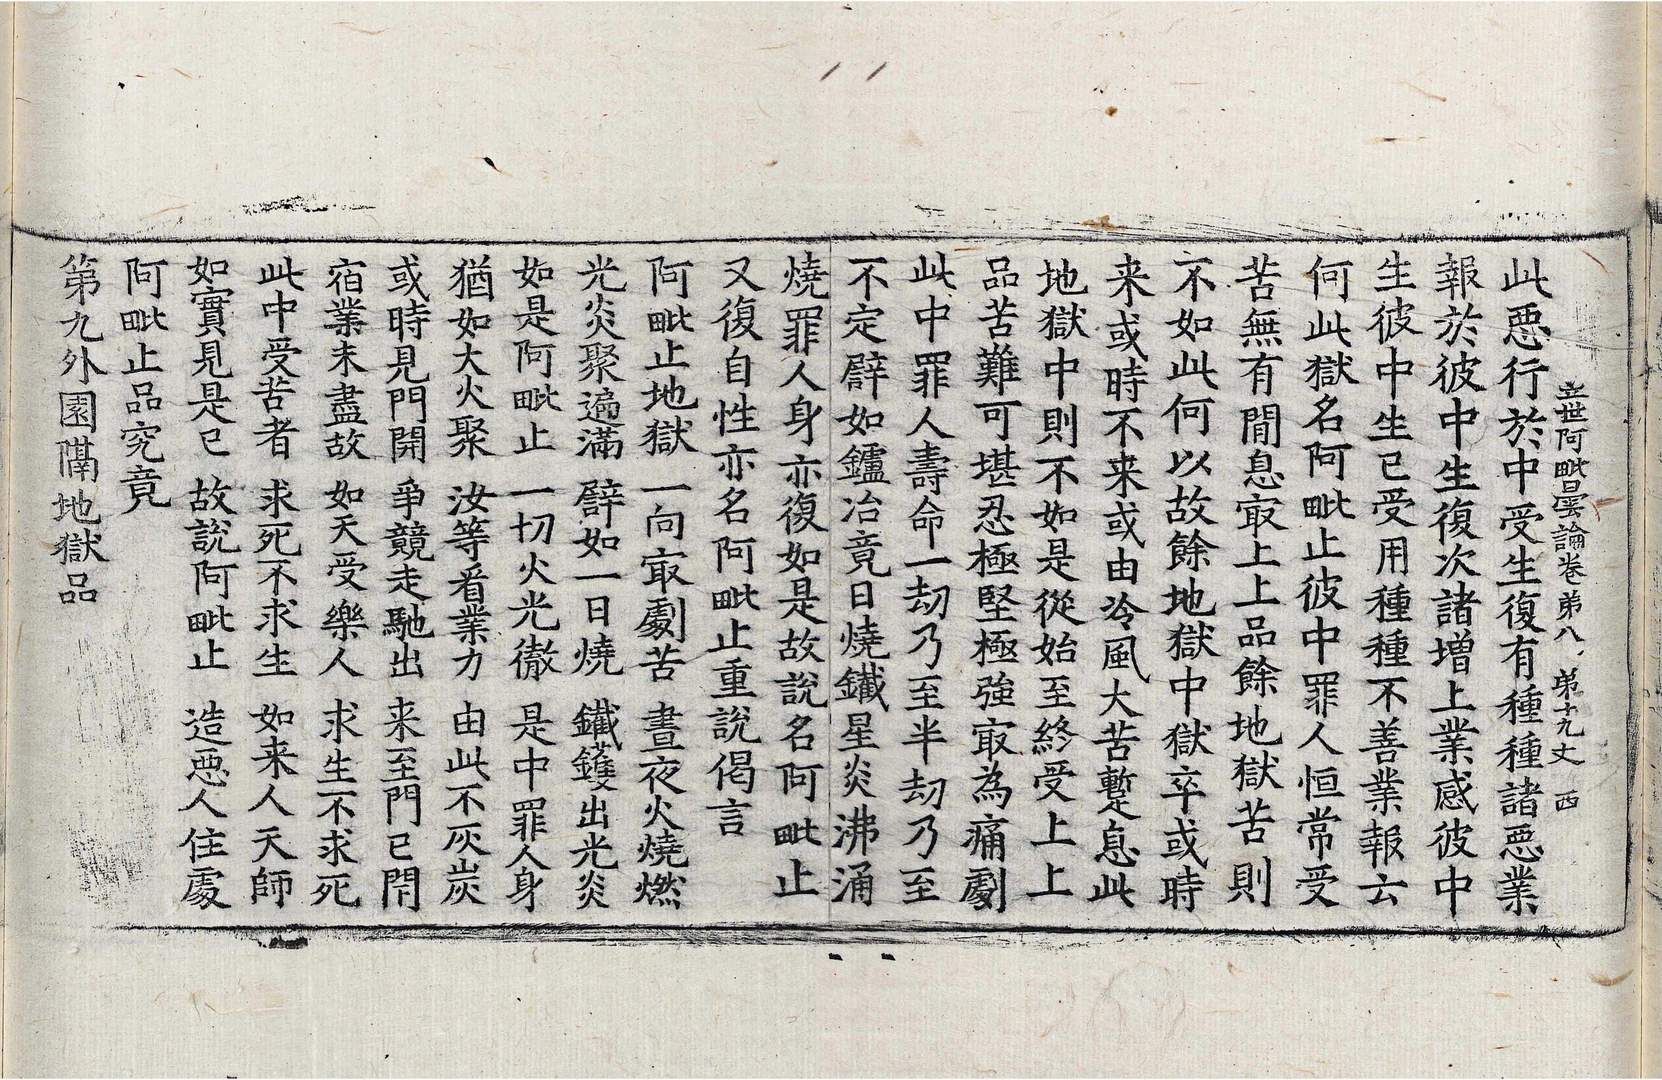 立世阿毗曇論卷弟八 弟十九丈 西
此惡行於中受生復有種種諸惡業
報於彼中生復次諸增上業感彼中
生彼中生已受用種種不善業報云
何此獄名阿毗止彼中罪人恒常受
苦無有閒息㝡上上品餘地獄苦則
不如此何以故餘地獄中獄卒或時
来或時不来或由冷風大苦蹔息此
地獄中則不如是從始至終受上上
品苦難可堪忍極堅極強㝡為痛劇
此中罪人壽命一劫乃至半劫乃至
不定譬如鑪冶竟日燒鐵星炎沸涌
燒罪人身亦復如是故說名阿毗止
又復自性亦名阿毗止重說偈言
阿毗止地獄 一向㝡劇苦 晝夜火燒燃
光炎聚遍滿 譬如一日燒 鐵鑊出光炎
如是阿毗止 一切火光徹 是中罪人身
猶如大火聚 汝等看業力 由此不灰炭
或時見門開 爭競走馳出 来至門已閇
宿業未盡故 如天受樂人 求生不求死
此中受苦者 求死不求生 如来人天師
如實見是已 故說阿毗止 造惡人住處
阿毗止品究竟
第九外園隔地獄品